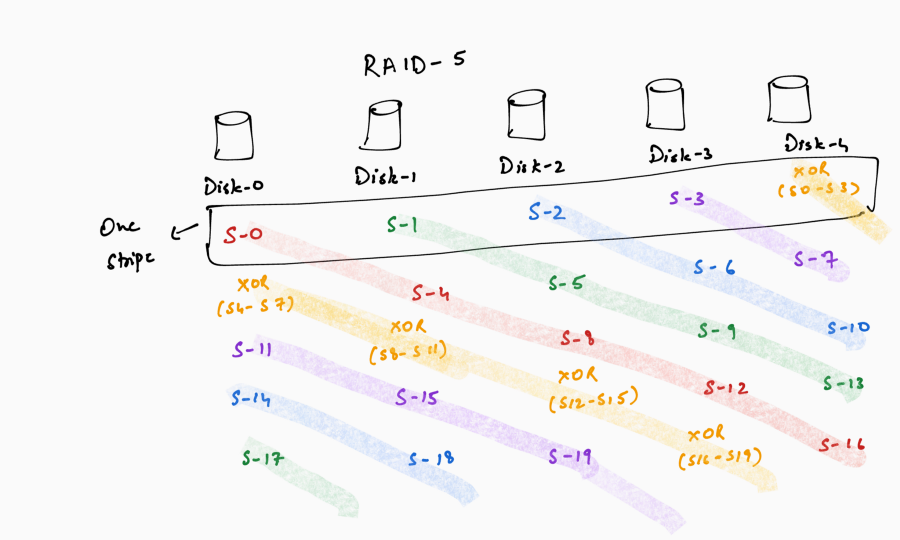 RAID-5
Disk-0 Disk-1 Disk-2 Disk-3 Disk-4
One
stripe
S-0 S-1 S-2 S-3 XOR
(S0-S3)
XOR
(S4-S7) S-4 S-5 S-6 S-7
S-11 XOR
(S8-S11) S-8 S-9 S-10
S-14 S-15 XOR
(S12-S15) S-12 S-13
S-17 S-18 S-19 XOR
(S16-S19) S-16